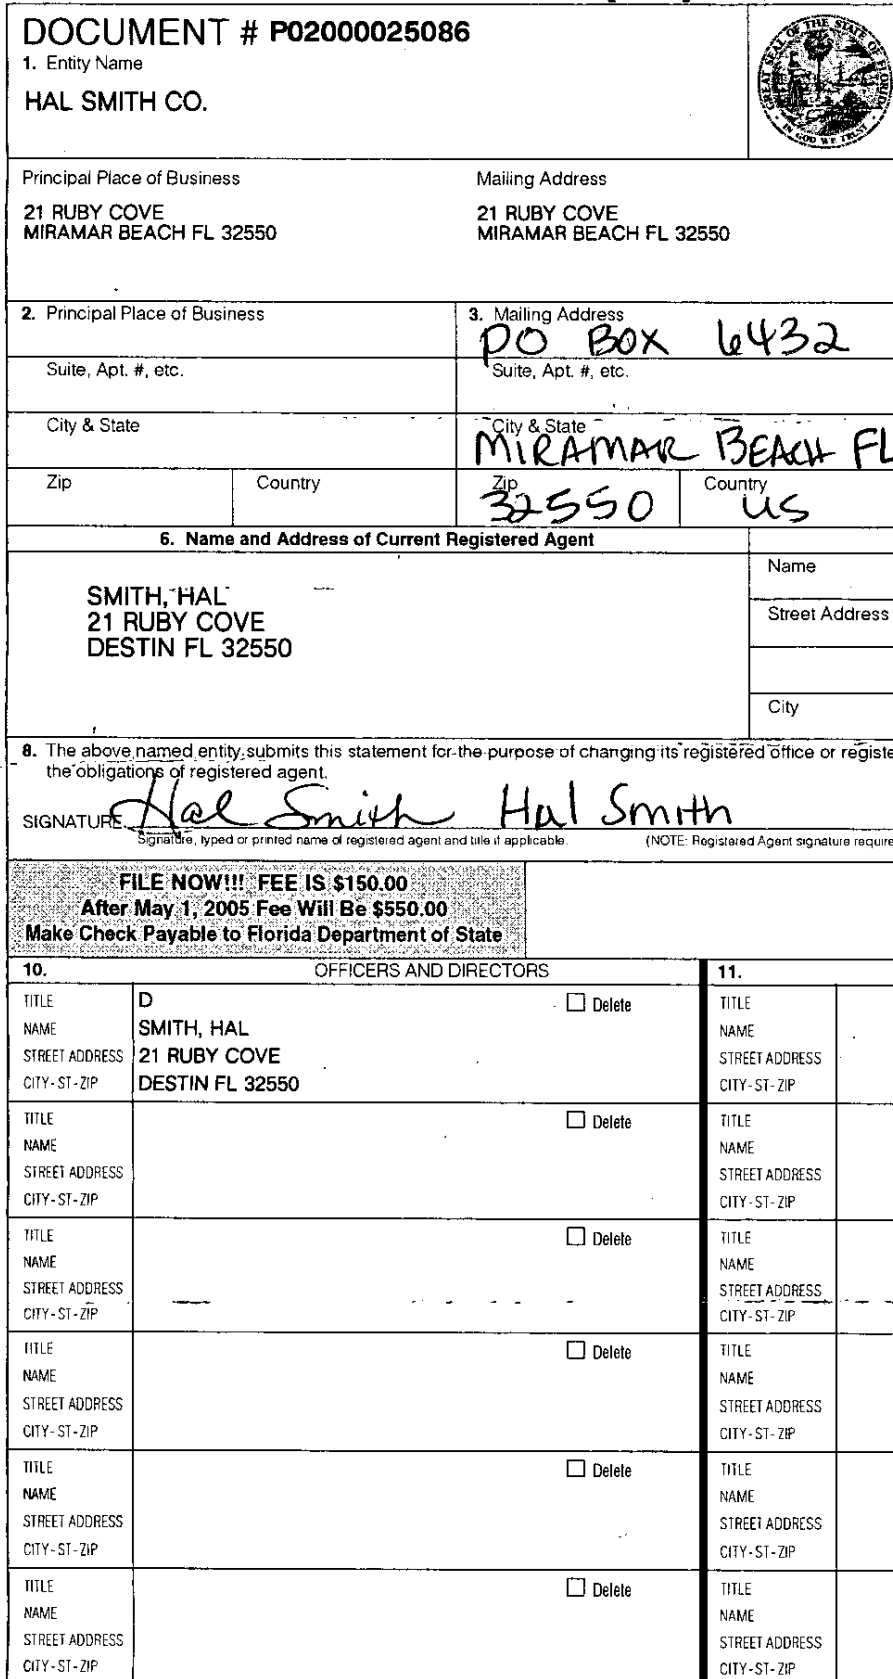 DOCUMENT # P02000025086
1. Entity Name
HAL SMITH CO.
GREAT SEAL OF THE STATE OF FLORIDA
IN GOD WE TRUST
Principal Place of Business
21 RUBY COVE
MIRAMAR BEACH FL 32550
Mailing Address
21 RUBY COVE
MIRAMAR BEACH FL 32550
2. Principal Place of Business
3. Mailing Address
PO BOX 6432
Suite, Apt. #, etc.
Suite, Apt. #, etc.
City & State
City & State
MIRAMAR BEACH FL
Zip
Country
Zip
32550
Country
US
6. Name and Address of Current Registered Agent
SMITH, HAL
21 RUBY COVE
DESTIN FL 32550
Name
Street Address
City
8. The above named entity submits this statement for the purpose of changing its registered office or registe
the obligations of registered agent.
SIGNATURE Hal Smith Hal Smith
Signature, typed or printed name of registered agent and title if applicable. (NOTE: Registered Agent signature require
FILE NOW!!! FEE IS $150.00
After May 1, 2005 Fee Will Be $550.00
Make Check Payable to Florida Department of State
10. OFFICERS AND DIRECTORS
11.
TITLE D Delete
NAME SMITH, HAL
STREET ADDRESS 21 RUBY COVE
CITY-ST-ZIP DESTIN FL 32550
TITLE
NAME
STREET ADDRESS
CITY-ST-ZIP
TITLE Delete
NAME
STREET ADDRESS
CITY-ST-ZIP
TITLE
NAME
STREET ADDRESS
CITY-ST-ZIP
TITLE Delete
NAME
STREET ADDRESS
CITY-ST-ZIP
TITLE
NAME
STREET ADDRESS
CITY-ST-ZIP
TITLE Delete
NAME
STREET ADDRESS
CITY-ST-ZIP
TITLE
NAME
STREET ADDRESS
CITY-ST-ZIP
TITLE Delete
NAME
STREET ADDRESS
CITY-ST-ZIP
TITLE
NAME
STREET ADDRESS
CITY-ST-ZIP
TITLE Delete
NAME
STREET ADDRESS
CITY-ST-ZIP
TITLE
NAME
STREET ADDRESS
CITY-ST-ZIP